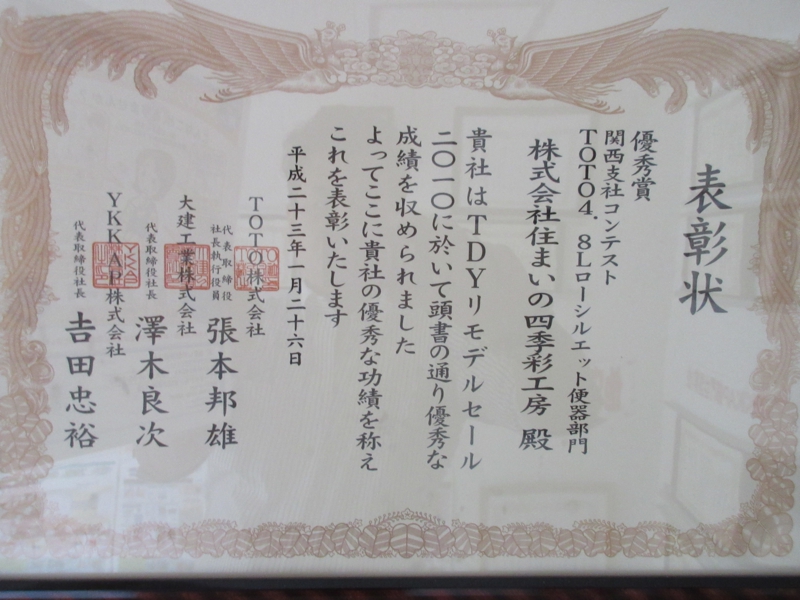 表彰状
優秀賞
関西支社コンテスト
TOTO4.8Lローシルエット便器部門
株式会社住まいの四季彩工房 殿
貴社はTDYリモデルセール
二〇一〇に於いて頭書の通り優秀な
成績を収められました
よってここに貴社の優秀な功績を称え
これを表彰いたします
平成二十三年一月二十六日
TOTO株式会社
代表取締役
社長執行役員
張本邦雄
大建工業株式会社
代表取締役社長
澤木良次
YKKAP株式会社
代表取締役社長
𠮷田忠裕